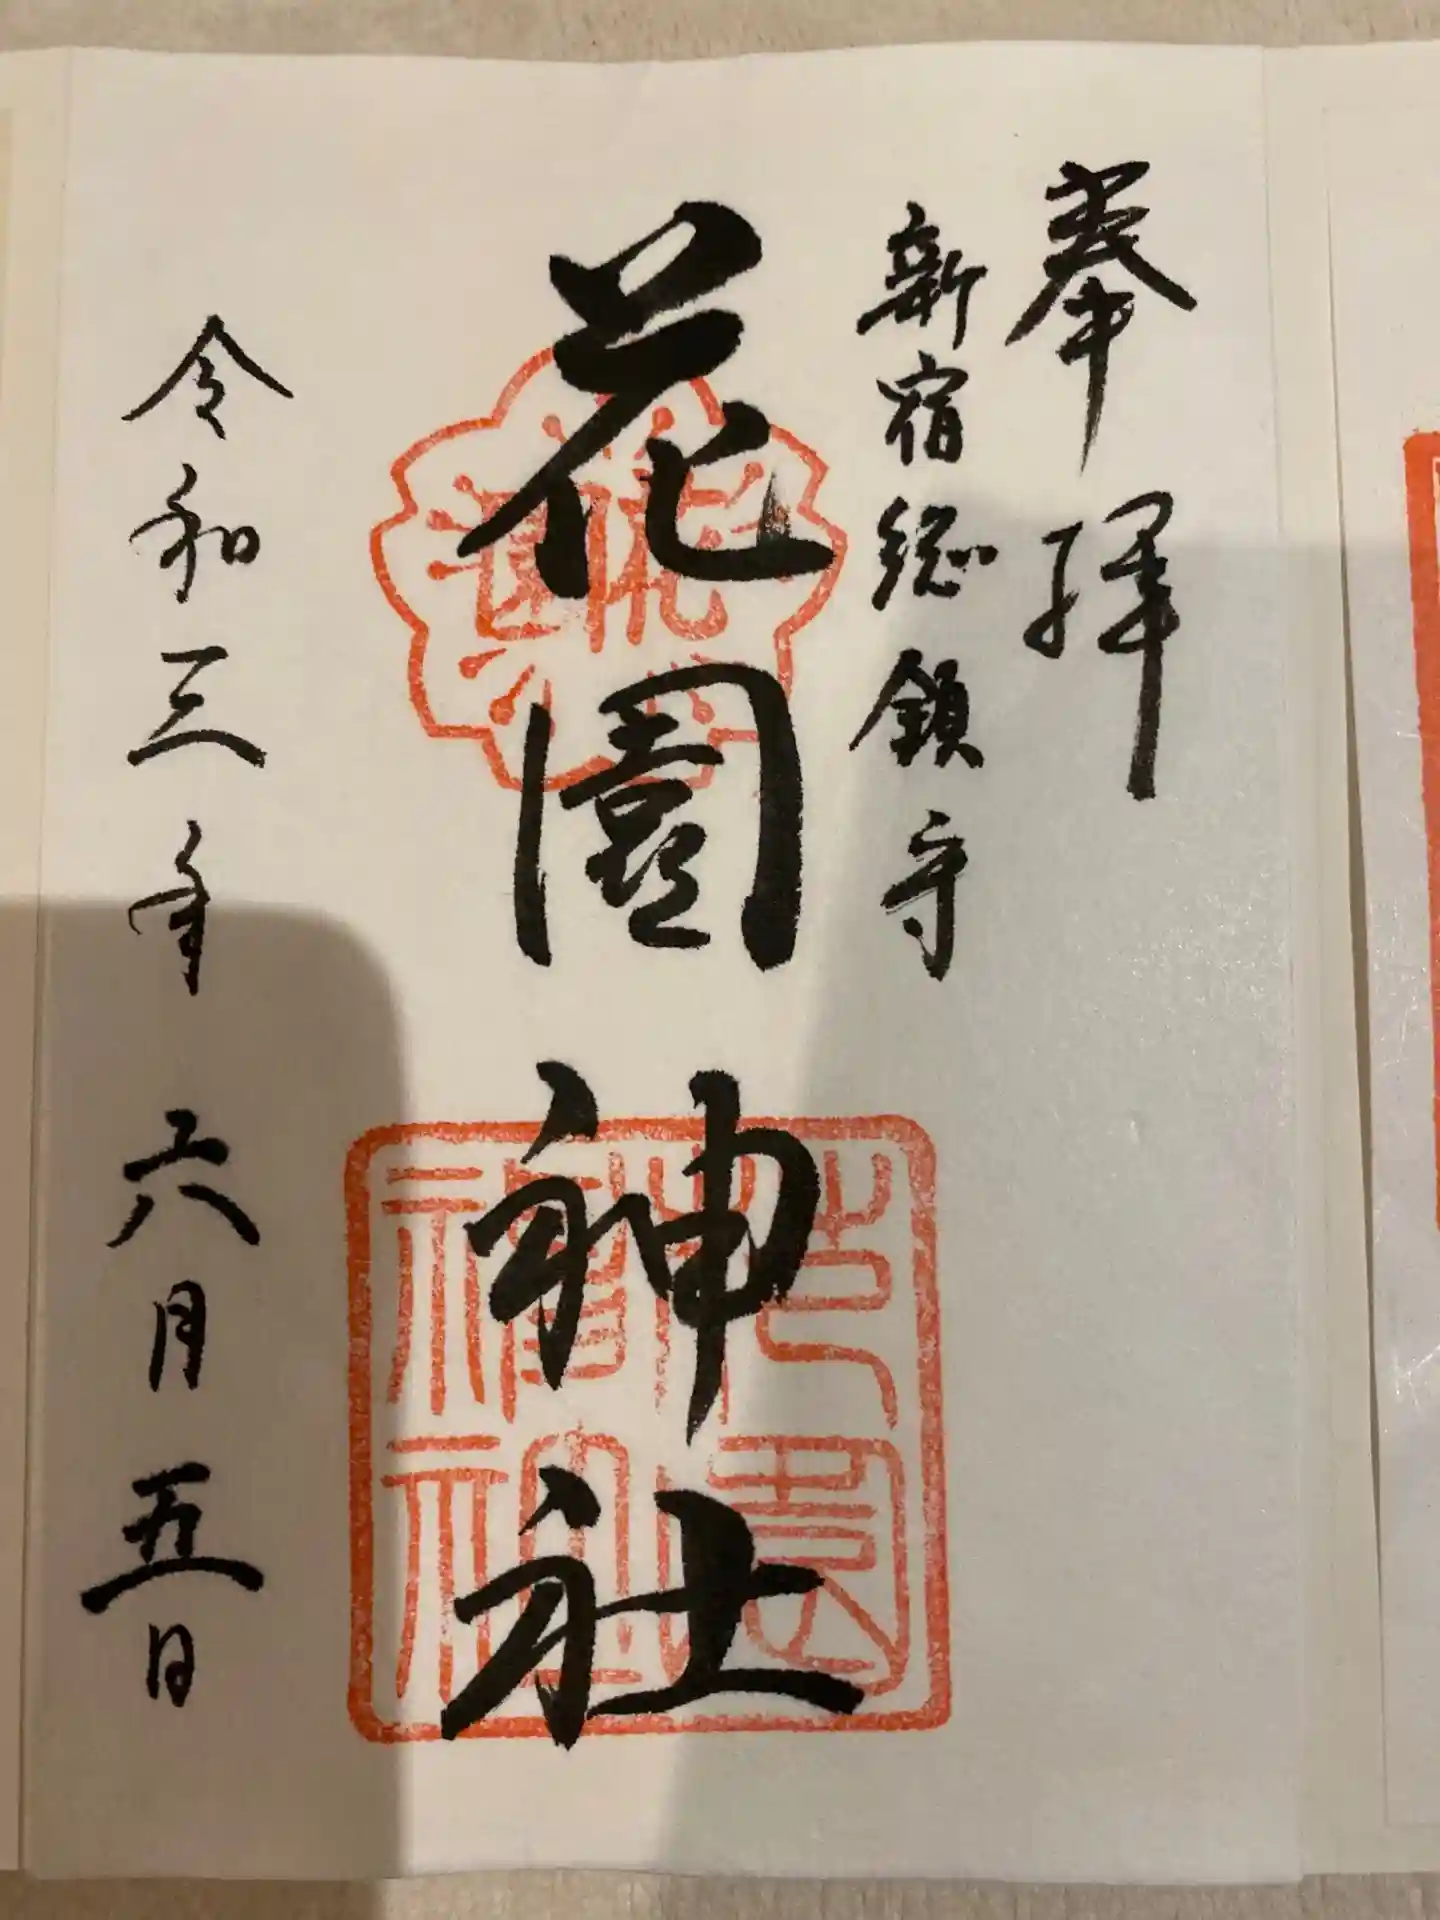 奉拝
新宿総鎮守
花園神社
令和三年六月五日
花園神社